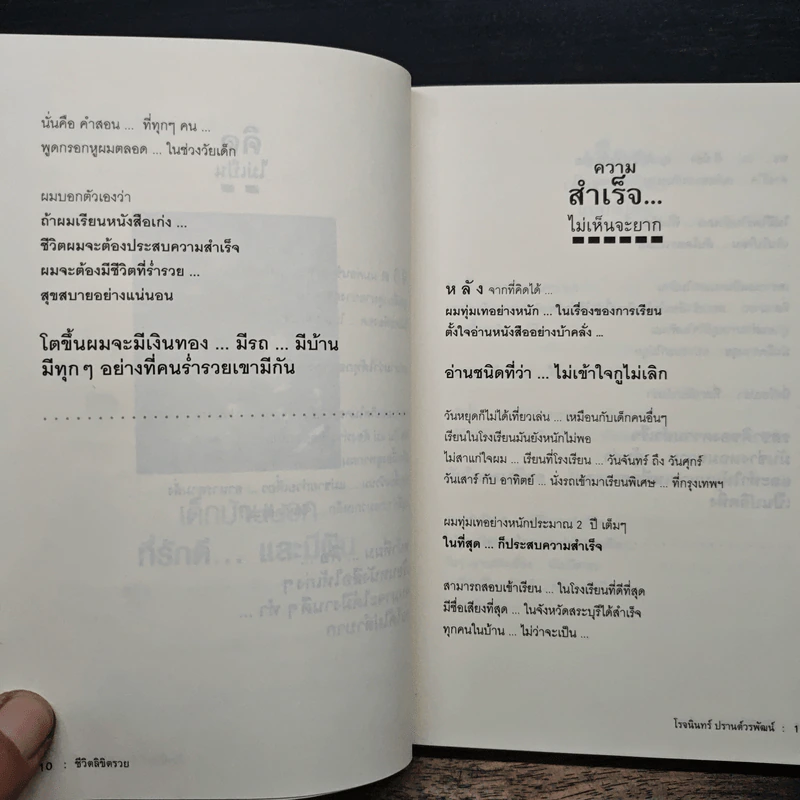 นั่นคือ คำสอน ... ที่ทุกๆ คน ...
พูดกรอกหูผมตลอด ... ในช่วงวัยเด็ก
ผมบอกตัวเองว่า
ถ้าผมเรียนหนังสือเก่ง ...
ชีวิตผมจะต้องประสบความสำเร็จ
ผมจะต้องมีชีวิตที่ร่ำรวย ...
สุขสบายอย่างแน่นอน
โตขึ้นผมจะมีเงินทอง ... มีรถ ... มีบ้าน
มีทุกๆ อย่างที่คนร่ำรวยเขามีกัน
10 : ชีวิตลิขิตรวย
ความ
สำเร็จ...
ไม่เห็นจะยาก
หลัง จากที่คิดได้ ...
ผมทุ่มเทอย่างหนัก ... ในเรื่องของการเรียน
ตั้งใจอ่านหนังสืออย่างบ้าคลั่ง ...
อ่านชนิดที่ว่า ... ไม่เข้าใจกูไม่เลิก
วันหยุดก็ไม่ได้เที่ยวเล่น ... เหมือนกับเด็กคนอื่นๆ
เรียนในโรงเรียนมันยังหนักไม่พอ
ไม่สาแก่ใจผม ... เรียนที่โรงเรียน ... วันจันทร์ ถึง วันศุกร์
วันเสาร์ กับ อาทิตย์ ... นั่งรถเข้ามาเรียนพิเศษ ... ที่กรุงเทพฯ
ผมทุ่มเทอย่างหนักประมาณ 2 ปี เต็มๆ
ในที่สุด ... ก็ประสบความสำเร็จ
สามารถสอบเข้าเรียน ... ในโรงเรียนที่ดีที่สุด
มีชื่อเสียงที่สุด ... ในจังหวัดสระบุรีได้สำเร็จ
ทุกคนในบ้าน ... ไม่ว่าจะเป็น ...
โรจนินทร์ ปรานต์วรพัฒน์ : 1